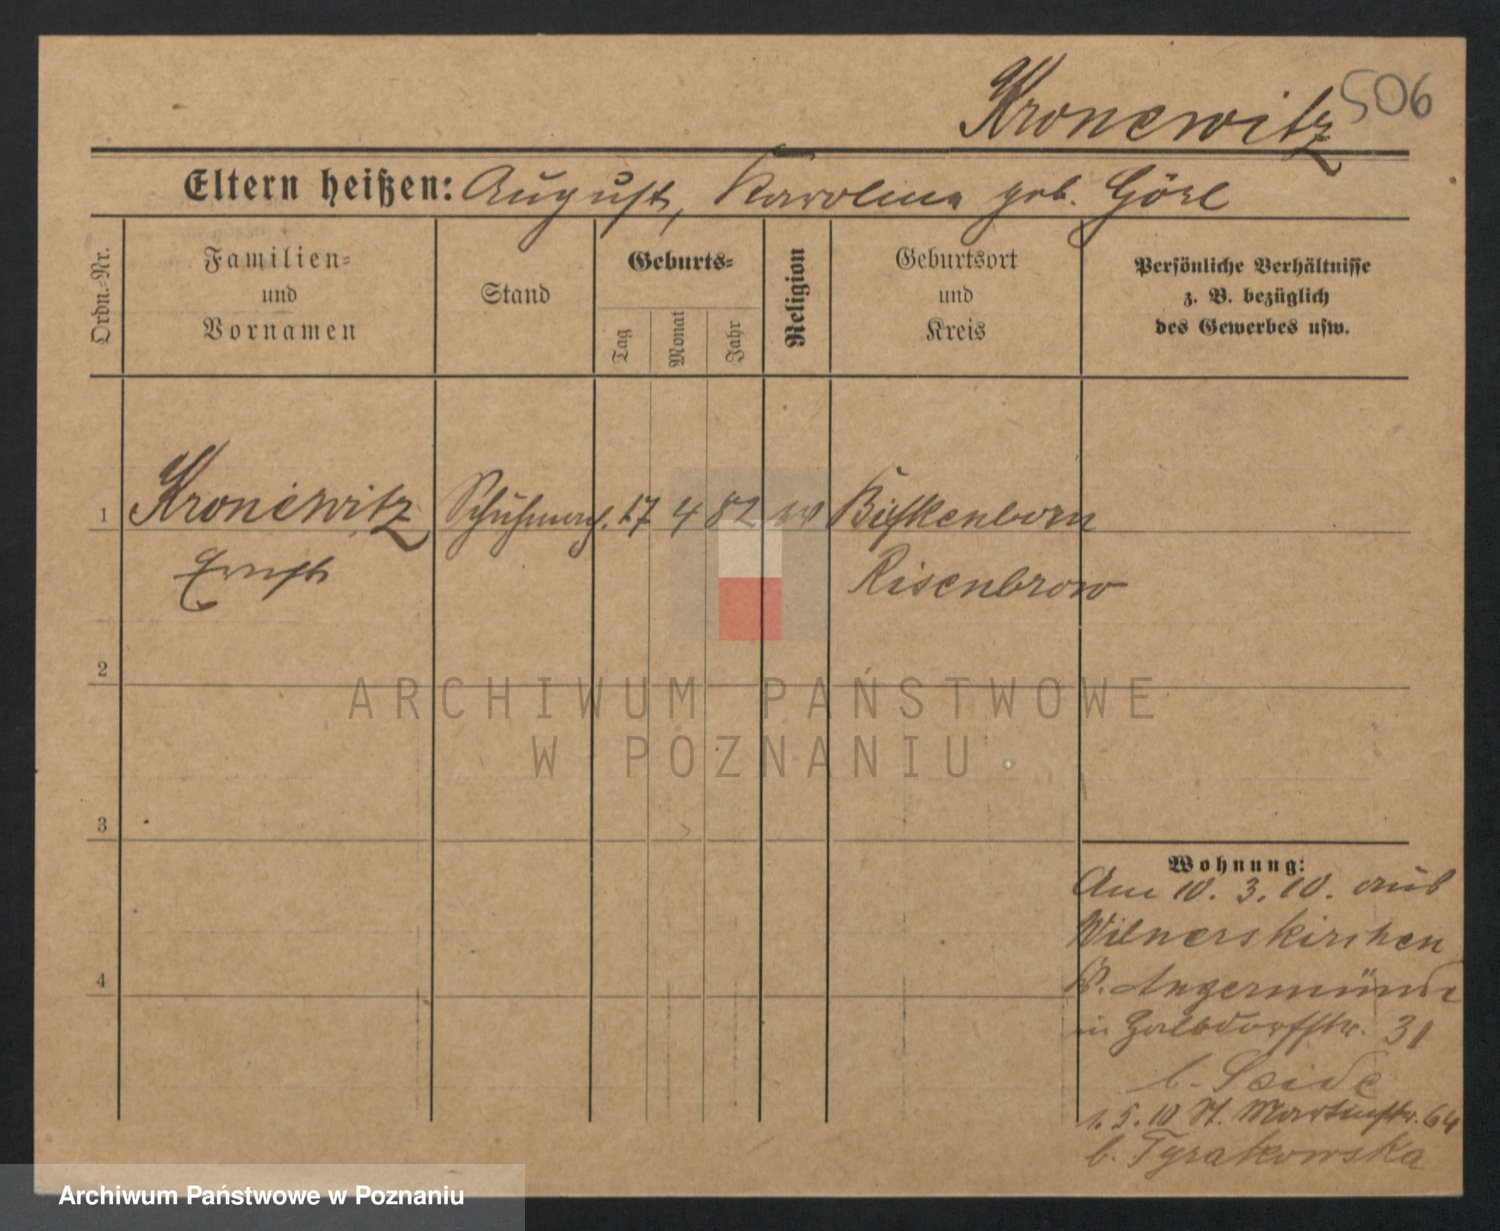 Kronewitz 506
Eltern heißen: August, Karoline geb. Görl
Ordn.-Nr.
Familien-
und
Vornamen
Stand
Geburts-
Tag
Monat
Jahr
Religion
Geburtsort
und
Kreis
Persönliche Verhältnisse
z. B. bezüglich
des Gewerbes usw.
1 Kronewitz Schuhmach. 17 4 82 Bischkenborn
Ernst Risenbrow
2
3
4
Wohnung:
Am 10. 3. 10. aus
Wilnerskirchen
K. Angermünde
in Halbdorfstr. 31
b. Seide
1. 5. 10 St. Martinstr. 64
b. Tyrakowska
ARCHIWUM PAŃSTWOWE
W POZNANIU
Archiwum Państwowe w Poznaniu